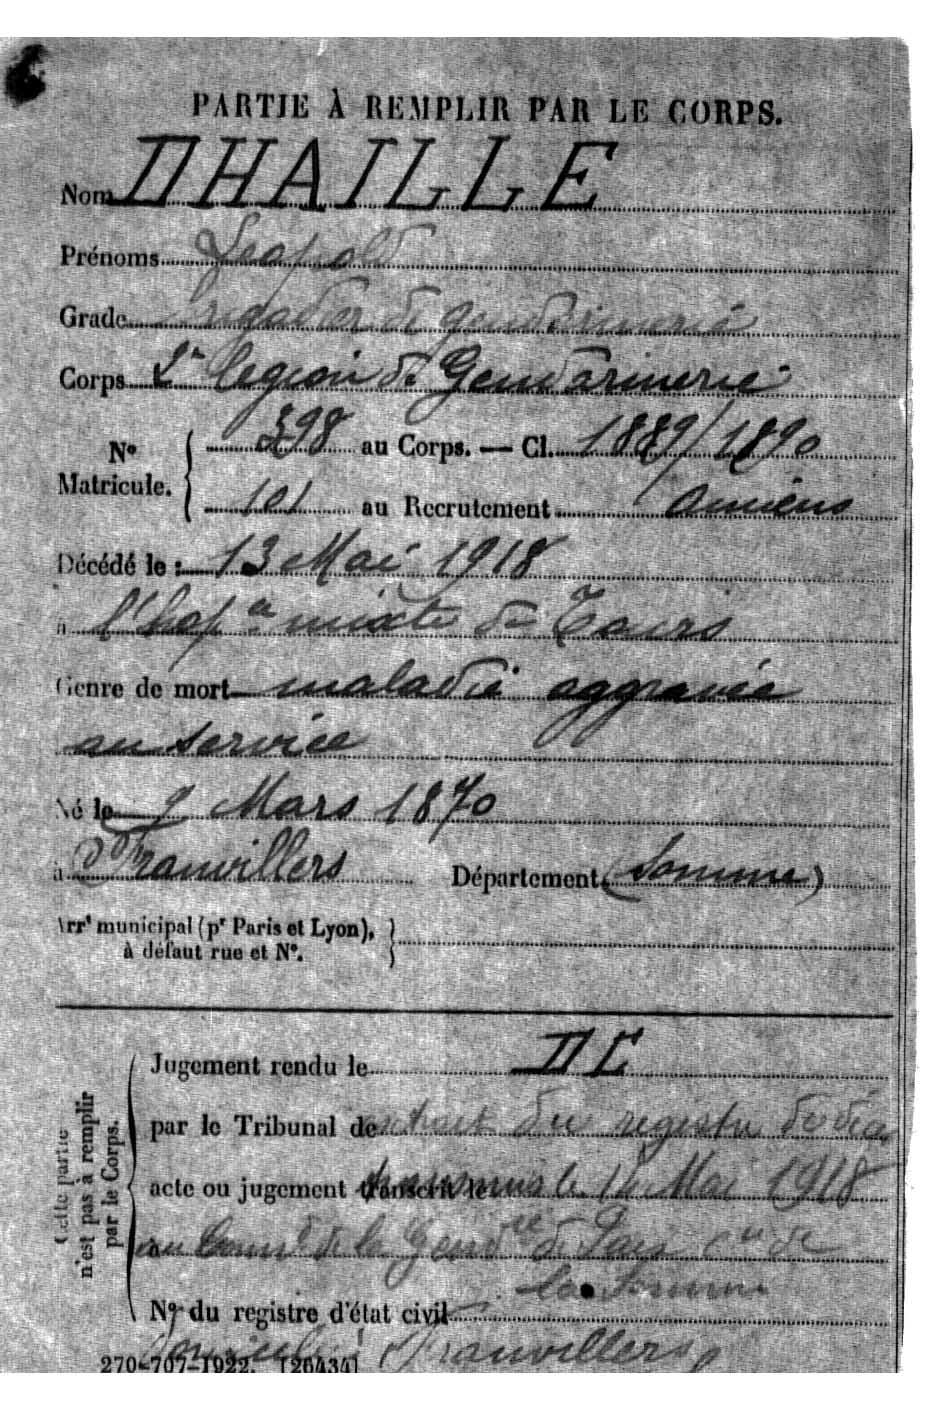 PARTIE À REMPLIR PAR LE CORPS.
Nom DHAILLE
Prénoms Léopold
Grade Brigadier de gendarmerie
Corps 2e Legion de Gendarmerie
No Matricule. { 398 au Corps. — Cl. 1889/1890
101 au Recrutement Amiens
Décédé le : 13 Mai 1918
à l'hopal mixte de Tours
Genre de mort maladie aggravée
au service
Né le 9 Mars 1870
à Franvillers Département (Somme)
Arrt municipal (pr Paris et Lyon),
à défaut rue et No.
Cette partie n'est pas à remplir par le Corps.
Jugement rendu le DC
par le Tribunal de extrait du registre de décès
acte ou jugement transcrit le transmis le 14 Mai 1918
au de la Gendrie de
la Somme
No du registre d'état civil
Franvillers
270-707-1922. [26434]